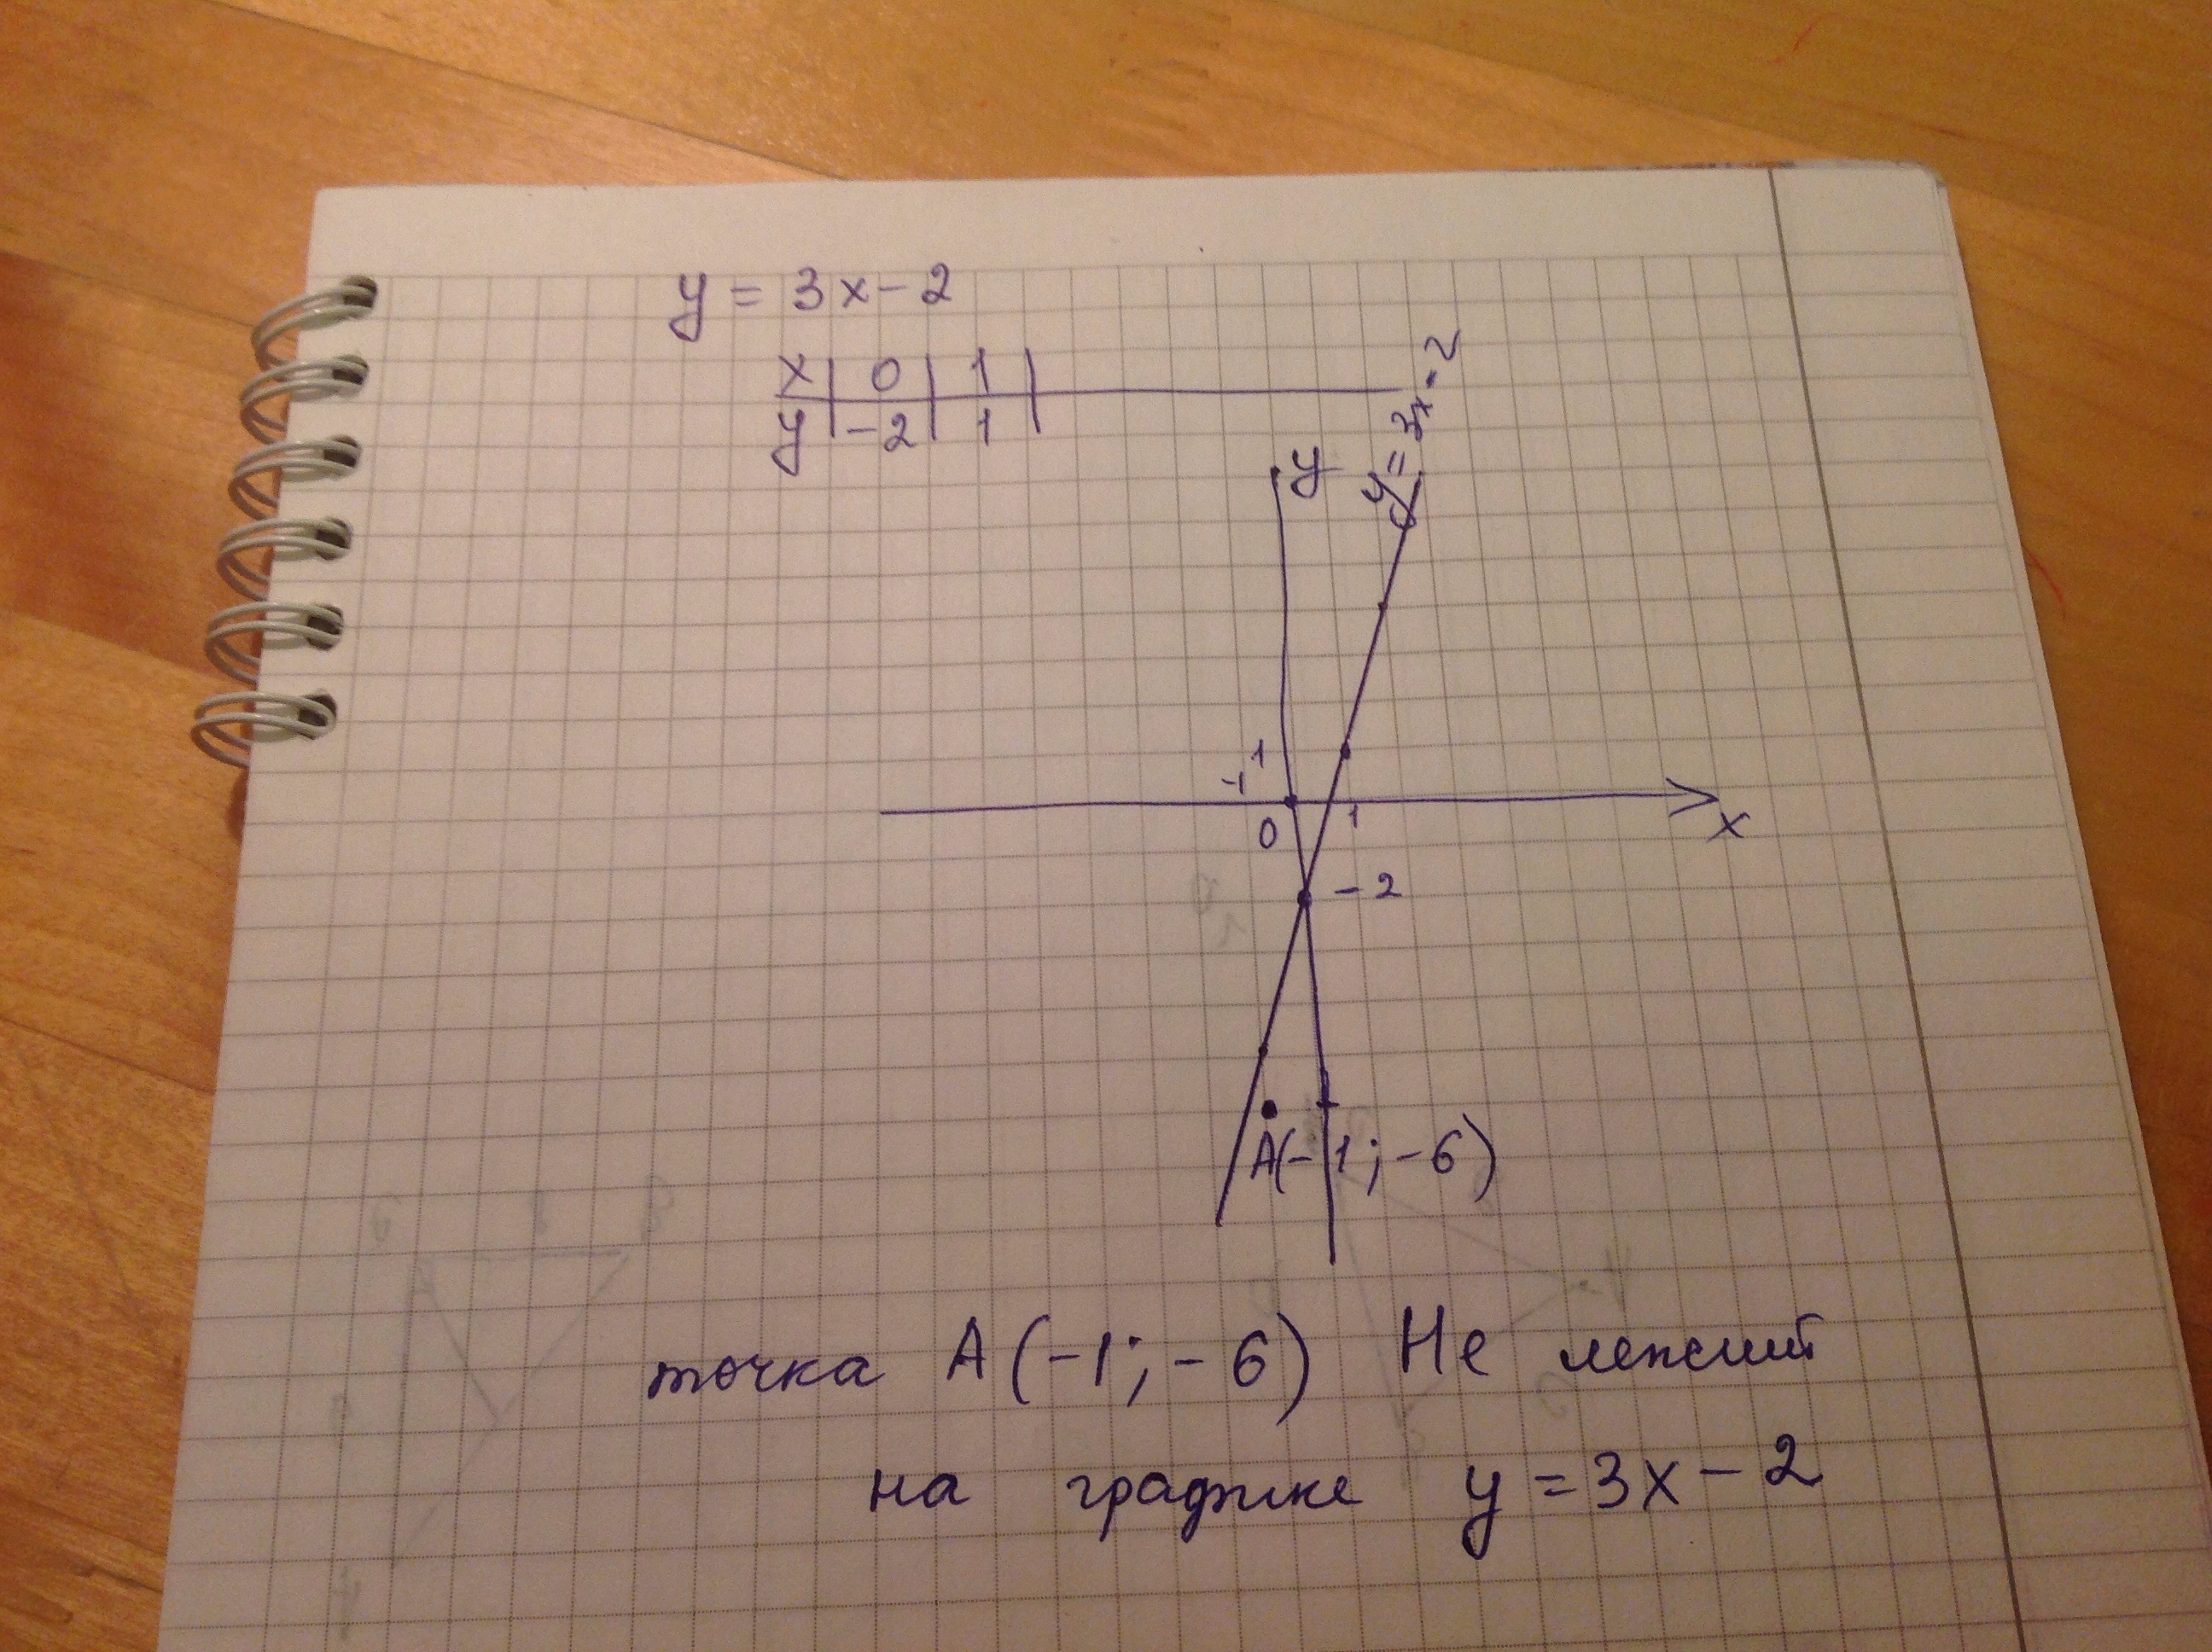 y = 3x - 2
x | 0 | 1 |
y | -2 | 1 |
y
y = 3x - 2
1
-1
0
1
x
-2
A(-1; -6)
точка A(-1; -6) Не лежит
на графике y = 3x - 2